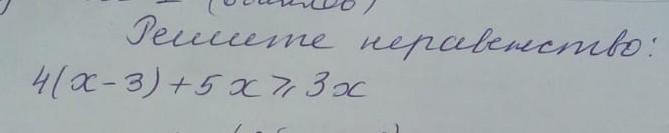 Решите неравенство:
4(x-3)+5x⩾3x